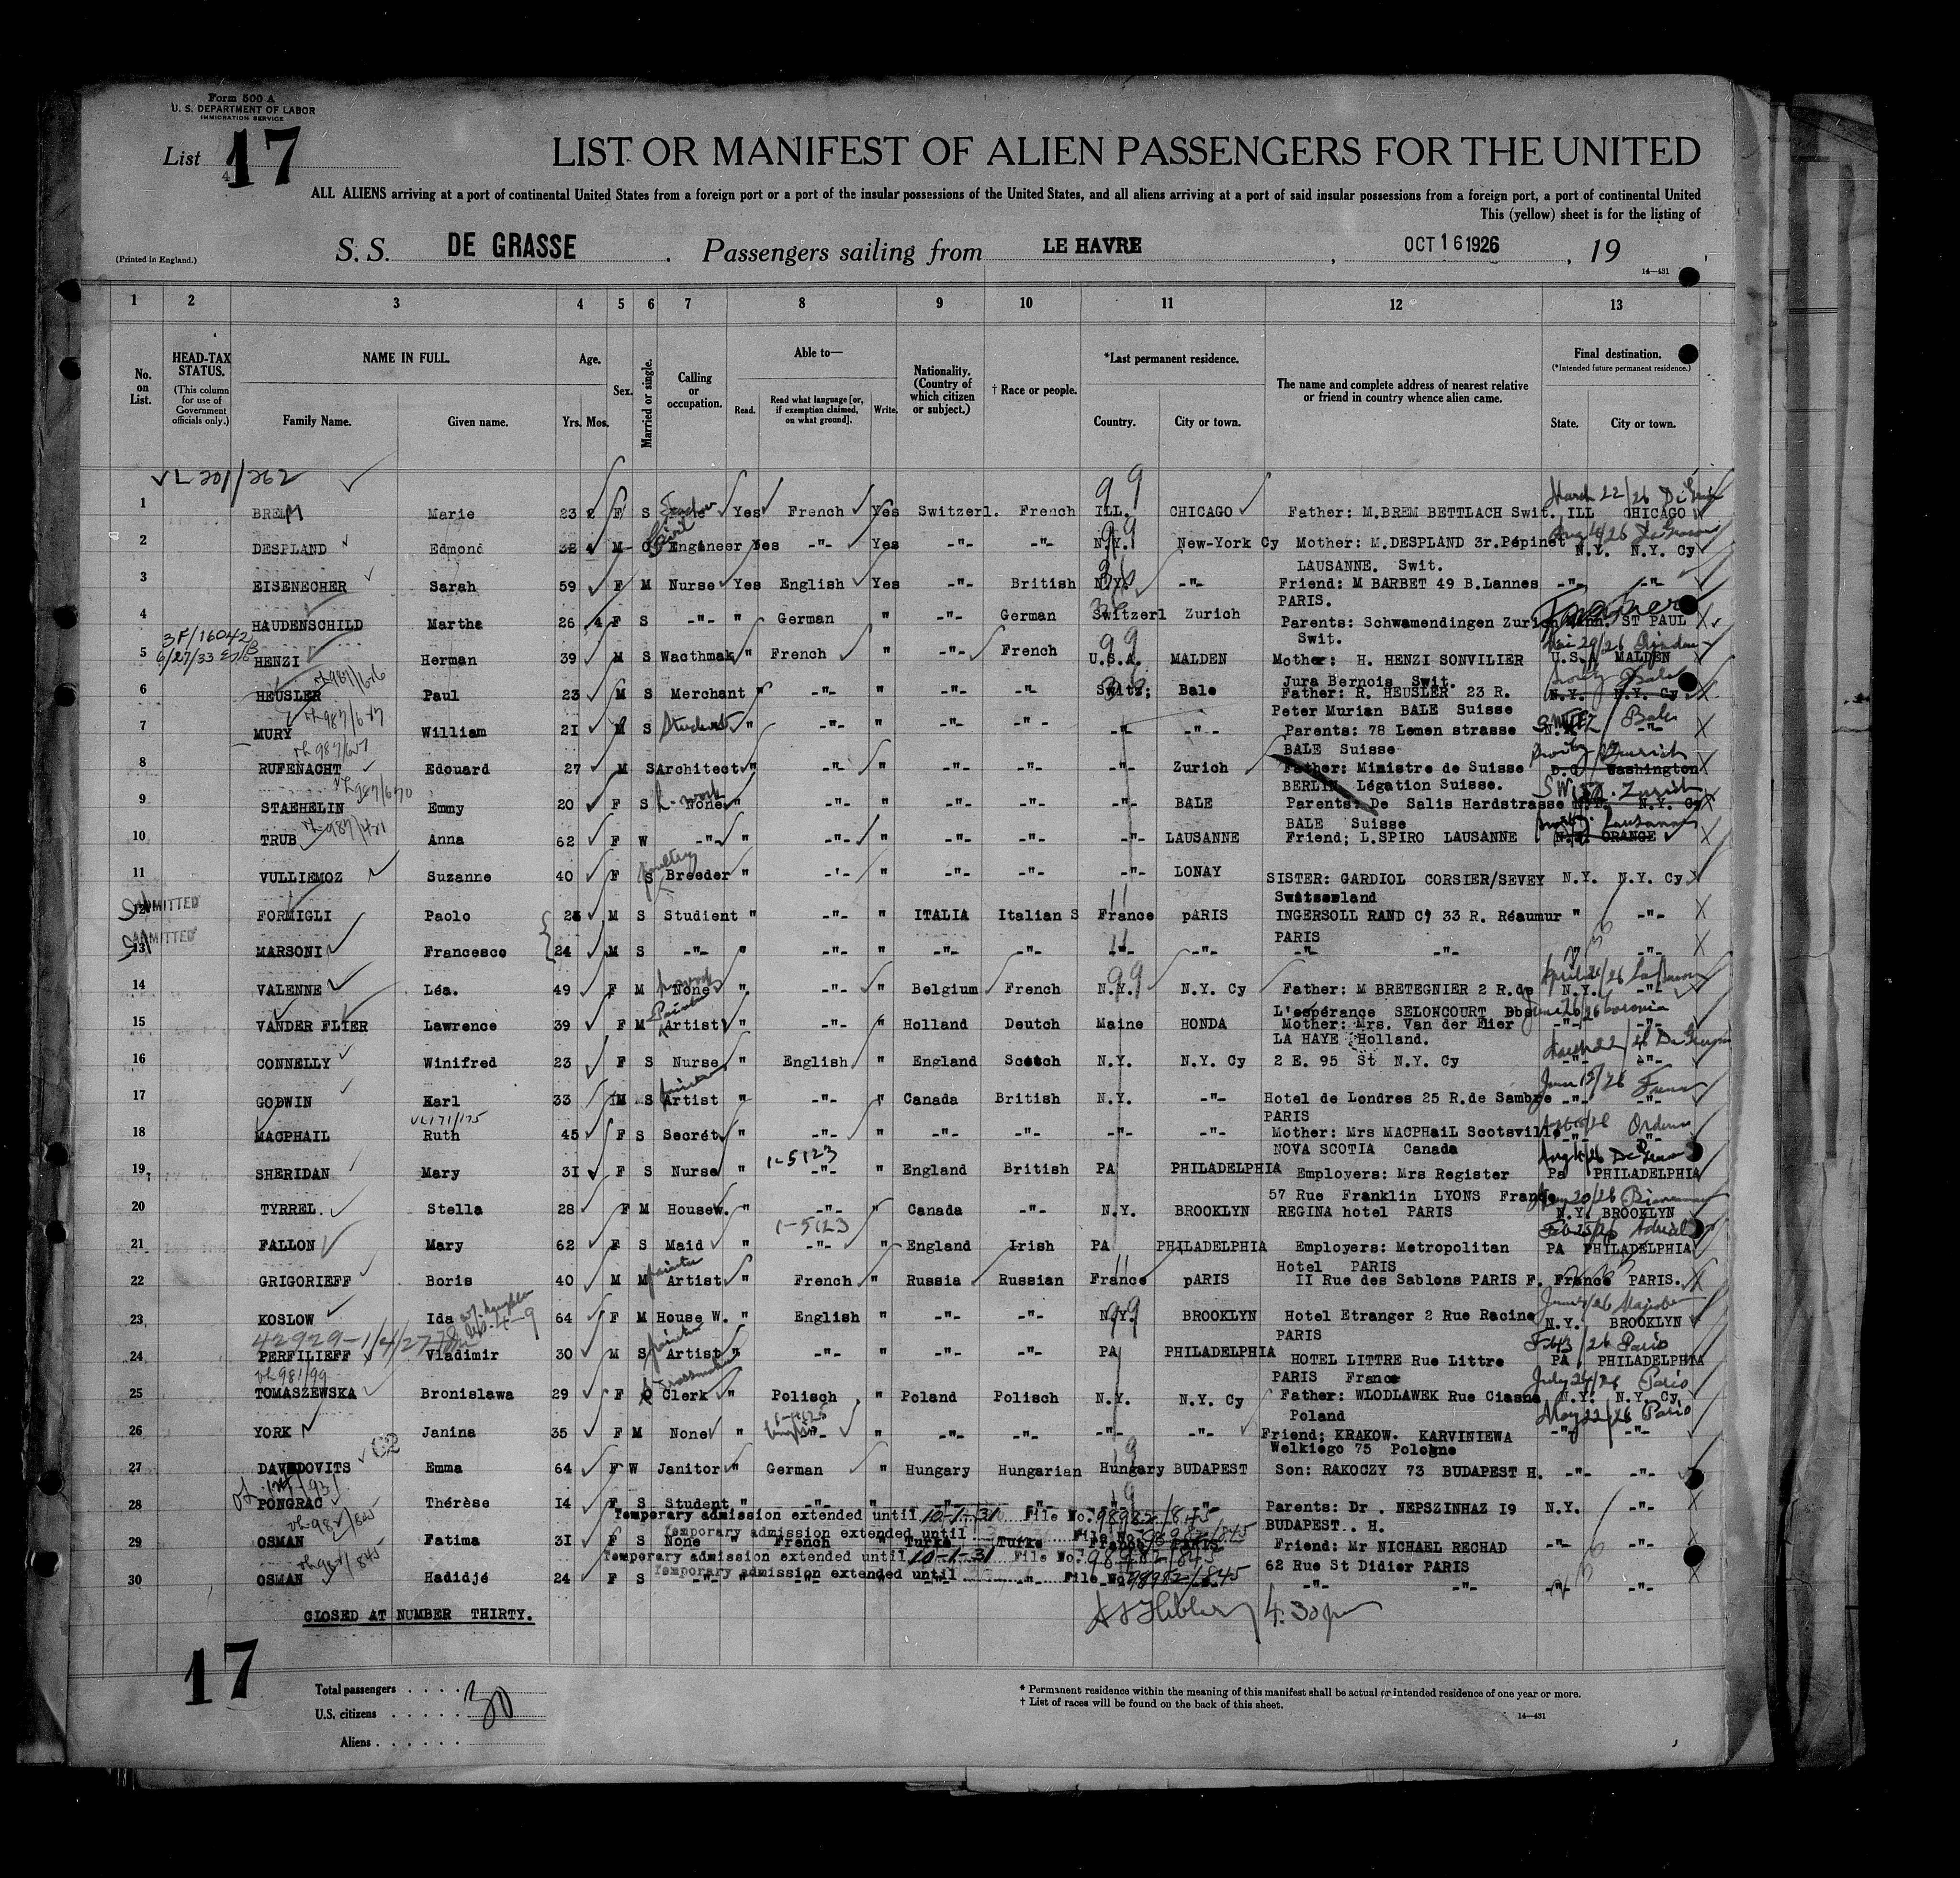 Form 500 A
U. S. DEPARTMENT OF LABOR
IMMIGRATION SERVICE
List 17
LIST OR MANIFEST OF ALIEN PASSENGERS FOR THE UNITED
ALL ALIENS arriving at a port of continental United States from a foreign port or a port of the insular possessions of the United States, and all aliens arriving at a port of said insular possessions from a foreign port, a port of continental United
This (yellow) sheet is for the listing of
(Printed in England.) S. S. DE GRASSE. Passengers sailing from LE HAVRE, OCT 16 1926, 19
14—431
1 2 3 4 5 6 7 8 9 10 11 12 13
No. on List. HEAD-TAX STATUS. (This column for use of Government officials only.) NAME IN FULL. Family Name. Given name. Age. Yrs. Mos. Sex. Married or single. Calling or occupation. Able to— Read. Read what language [or, if exemption claimed, on what ground]. Write. Nationality. (Country of which citizen or subject.) † Race or people. *Last permanent residence. Country. City or town. The name and complete address of nearest relative or friend in country whence alien came. Final destination. (*Intended future permanent residence.) State. City or town.
VL 201/262
99 March 22/26
1 BREM Marie 23 2 F S Yes French Yes Switzerl. French ILL. CHICAGO Father: M.BREM BETTLACH Swit. ILL CHICAGO
2 DESPLAND Edmond M Civil Engineer Yes -"- Yes -"- -"- N.Y. New-York Cy Mother: M.DESPLAND 3r.Pépinet N.Y. N.Y. Cy
LAUSANNE. Swit.
3 EISENECHER Sarah 59 F M Nurse Yes English Yes -"- British N.Y. -"- Friend: M BARBET 49 B.Lannes -"- -"-
PARIS.
4 HAUDENSCHILD Martha 26 4 F S -"- " German " -"- German Switzerl Zurich Parents: Schwamendingen Zurich Minn. ST PAUL
Swit.
3F/16042
6/27/33
5 HENZI Herman 39 M S Wacthmak " French " -"- French U.S.A. MALDEN Mother: H. HENZI SONVILIER U.S.A MALDEN
Jura Bernois Swit.
6 HEUSLER Paul 23 M S Merchant " -"- " -"- -"- Switz; Bale Father: R. HEUSLER 23 R. N.Y. N.Y. Cy
Peter Murian BALE Suisse
7 MURY William 21 M S Student " -"- " -"- -"- -"- -"- Parents: 78 Lemen strasse Bale
BALE Suisse
8 RUFENACHT Edouard 27 M S Architect " -"- " -"- -"- -"- Zurich Father: Ministre de Suisse D.C Washington
BERLIN Légation Suisse.
9 STAEHELIN Emmy 20 F S None " -"- " -"- -"- -"- BALE Parents: De Salis Hardstrasse N.Y. N.Y. Cy
BALE Suisse
10 TRUB Anna 62 F W -"- " -"- " -"- -"- -"- LAUSANNE Friend; L.SPIRO LAUSANNE ORANGE
11 VULLIEMOZ Suzanne 40 F S poultry Breeder " -"- " -"- -"- -"- LONAY SISTER: GARDIOL CORSIER/SEVEY N.Y. N.Y. Cy
Switzerland
ADMITTED
12 FORMIGLI Paolo M S Studient " -"- " ITALIA Italian S France pARIS INGERSOLL RAND C° 33 R. Réaumur " -"-
PARIS
ADMITTED
13 MARSONI Francesco 24 M S -"- " -"- " -"- -"- -"- -"- -"- -"- " -"-
14 VALENNE Léa. 49 F M None " -"- " Belgium French N.Y. N.Y. Cy Father: M BRETEGNIER 2 R.de N.Y. -"-
L'espérance SELONCOURT Dbs
15 VANDER FLIER Lawrence 39 F M Artist " -"- " Holland Deutch Maine HONDA Mother: Mrs. Van der Flier -"- -"-
LA HAYE Holland.
16 CONNELLY Winifred 23 F S Nurse " English " England Scotch N.Y. N.Y. Cy 2 E. 95 St N.Y. Cy -"- -"-
17 GODWIN Karl 33 M S Artist " -"- " Canada British N.Y. -"- Hotel de Londres 25 R.de Sambre -"- -"-
PARIS
VL171/175
18 MACPHAIL Ruth 45 F S Secrét. " -"- " -"- -"- -"- -"- Mother: Mrs MACPHaiL Scotsville -"- -"-
NOVA SCOTIA Canada
1-5123
19 SHERIDAN Mary 31 F S Nurse " -"- " England British PA PHILADELPHIA Employers: Mrs Register Pa PHILADELPHIA
57 Rue Franklin LYONS France
20 TYRREL. Stella 28 F M Housew. " -"- " Canada -"- N.Y. BROOKLYN REGINA hotel PARIS N.Y. BROOKLYN
1-5123
21 FALLON Mary 62 F S Maid " -"- " England Irish PA PHILADELPHIA Employers: Metropolitan PA PHILADELPHIA
Hotel PARIS
22 GRIGORIEFF Boris 40 M M painter Artist " French " Russia Russian France pARIS II Rue des Sablons PARIS F. France PARIS.
23 KOSLOW Ida 64 F M House W. " English " -"- -"- N.Y. BROOKLYN Hotel Etranger 2 Rue Racine N.Y. BROOKLYN
PARIS
24 PERFILIEFF Vladimir 30 M S painter Artist " -"- " -"- -"- PA PHILADELPHIA HOTEL LITTRE Rue Littre PA PHILADELPHIA
PARIS France
25 TOMASZEWSKA Bronislawa 29 F Clerk " Polisch " Poland Polisch N.Y. N.Y. Cy Father: WLODLAWEK Rue Ciasna N.Y. N.Y. Cy
Poland May 22/26 Paris
26 YORK Janina 35 F M None " -"- " -"- -"- -"- -"- Friend; KRAKOW. KARVINIEWA -"- -"-
Welkiego 75 Pologne
27 DAVEDOVITS Emma 64 F W Janitor " German " Hungary Hungarian Hungary BUDAPEST Son: RAKOCZY 73 BUDAPEST H. -"- -"-
28 PONGRAC Thérèse 14 F S Student " -"- " -"- -"- -"- -"- Parents: Dr . NEPSZINHAZ 19 N.Y. -"-
Temporary admission extended until 10-1-31 File No. 98982/845 BUDAPEST.. H.
Temporary admission extended until File No. 98982/845
29 OSMAN Fatima 31 F S None " French " Turke Turke France PARIS Friend: Mr NICHAEL RECHAD -"- -"-
Temporary admission extended until 10-1-31 File No. 98982/845 62 Rue St Didier PARIS
Temporary admission extended until File No. 98982/845
30 OSMAN Hadidjé 24 F S -"- " -"- " -"- -"- -"- -"- -"- -"- -"- -"-
CLOSED AT NUMBER THIRTY.
4.30 pm
17
Total passengers . . . . 30
U.S. citizens . . . . .
Aliens . . . . . .
* Permanent residence within the meaning of this manifest shall be actual or intended residence of one year or more.
† List of races will be found on the back of this sheet.
14—431